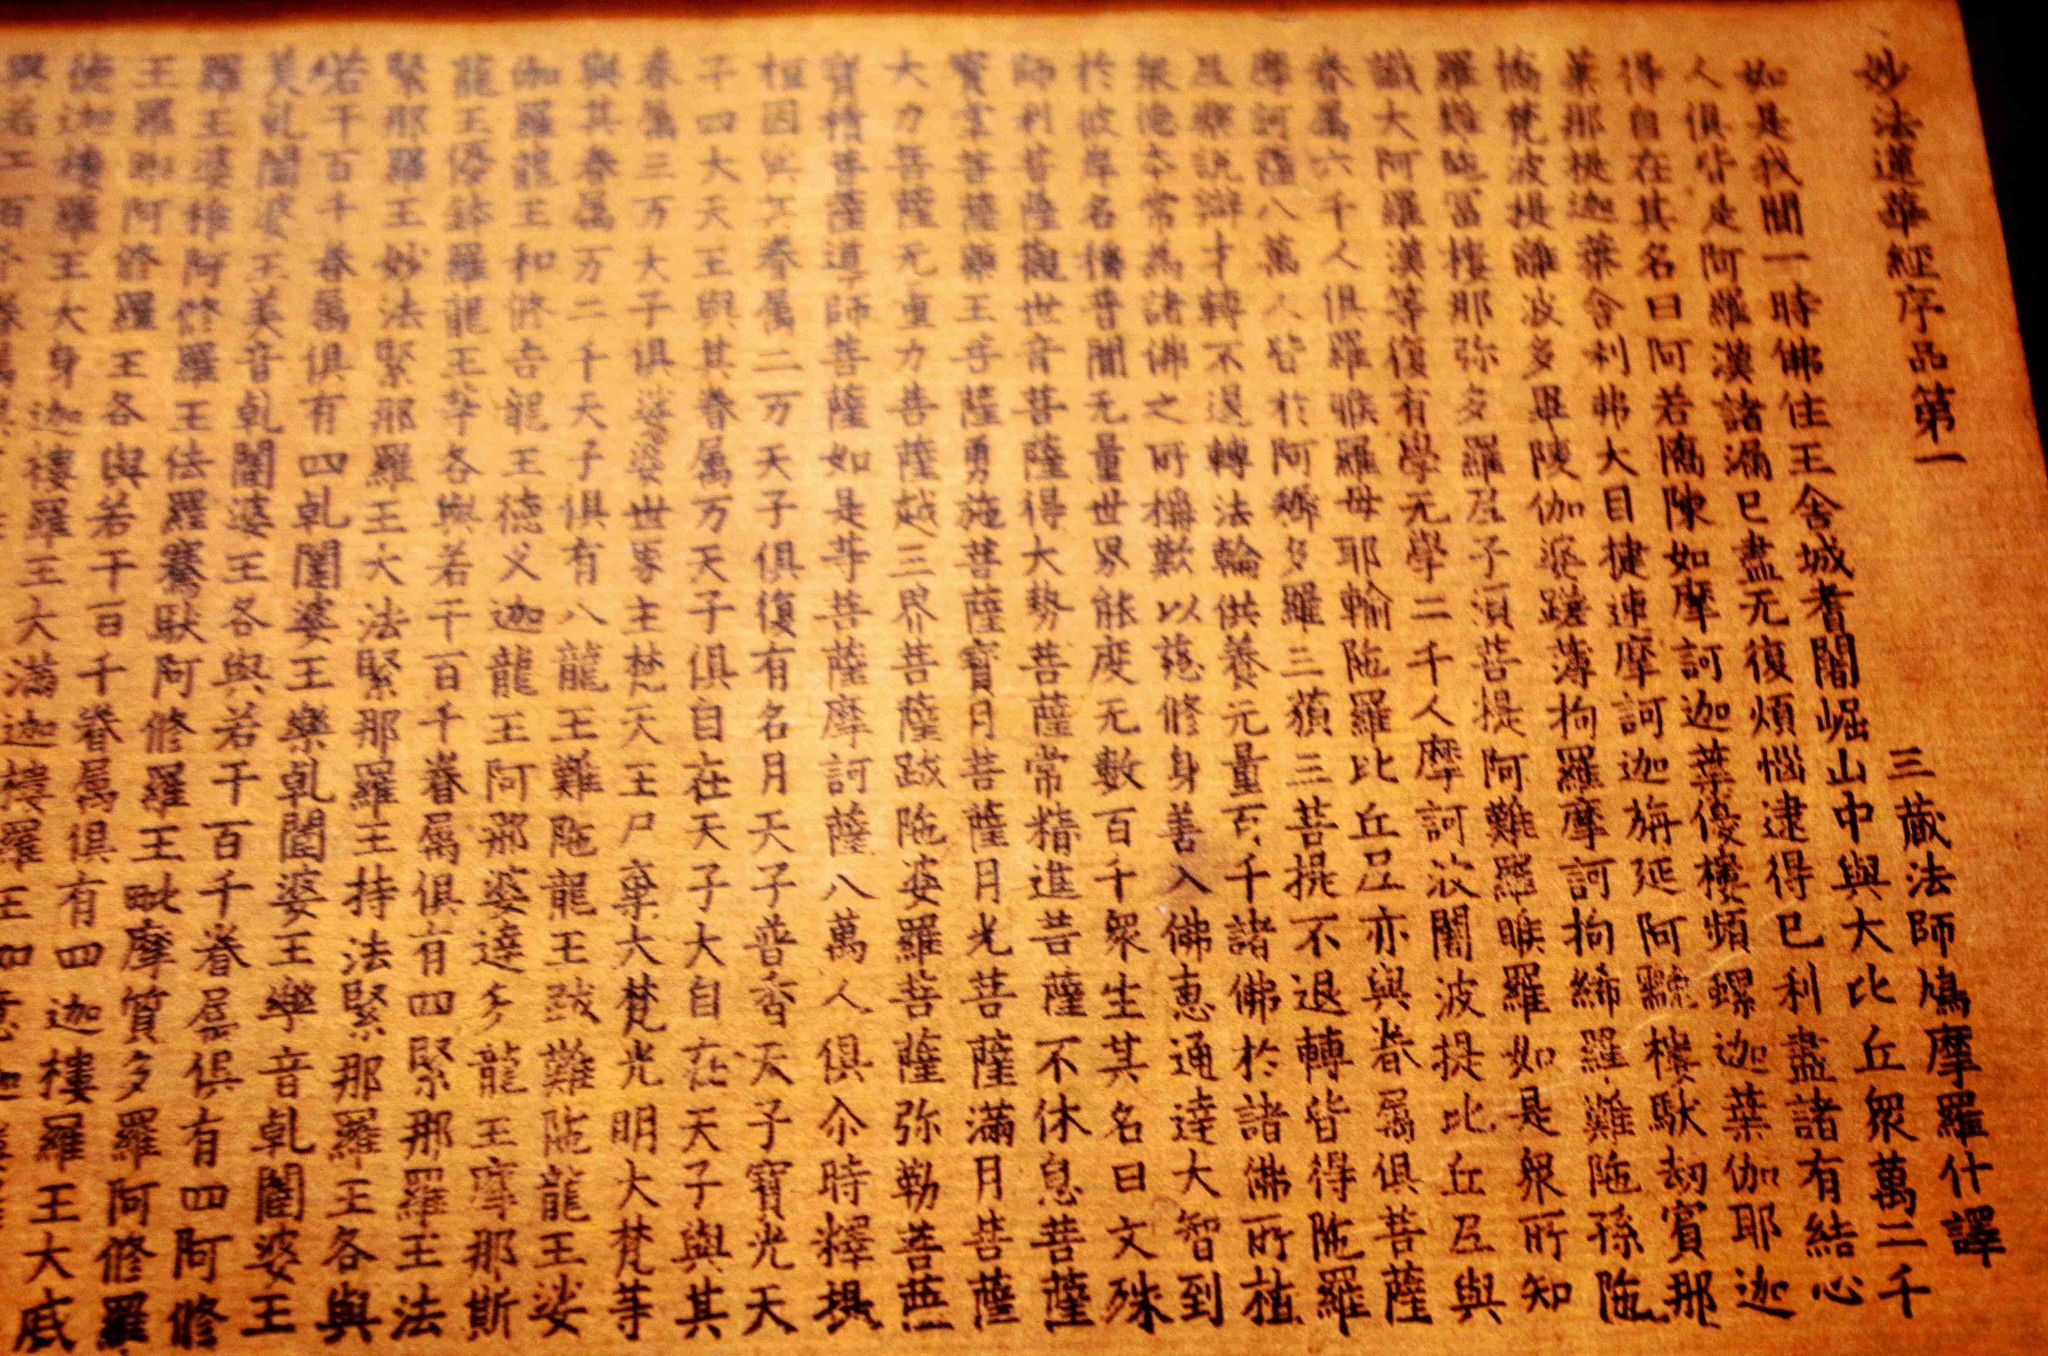 妙法蓮華經序品第一
三藏法師鳩摩羅什譯
如是我聞一時佛住王舍城耆闍崛山中與大比丘衆萬二千
人俱皆是阿羅漢諸漏已盡无復煩惱逮得已利盡諸有結心
得自在其名曰阿若憍陳如摩訶迦葉優樓頻螺迦葉伽耶迦
葉那提迦葉舍利弗大目揵連摩訶迦旃延阿㝹樓馱劫賓那
憍梵波提離波多畢陵伽婆蹉薄拘羅摩訶拘絺羅難陁孫陁
羅難陁富樓那弥多羅尼子須菩提阿難羅睺羅如是衆所知
識大阿羅漢等復有學无學二千人摩訶波闍波提比丘尼與
眷屬六千人俱羅睺羅母耶輸陁羅比丘尼亦與眷屬俱菩薩
摩訶薩八萬人皆於阿耨多羅三藐三菩提不退轉皆得陁羅
尼樂說辯才轉不退轉法輪供養无量百千諸佛於諸佛所植
衆德本常為諸佛之所稱歎以慈修身善入佛惠通達大智到
於彼岸名稱普聞无量世界能度无數百千衆生其名曰文殊
師利菩薩觀世音菩薩得大勢菩薩常精進菩薩不休息菩薩
寶掌菩薩藥王菩薩勇施菩薩寶月菩薩月光菩薩滿月菩薩
大力菩薩无量力菩薩越三界菩薩跋陁婆羅菩薩弥勒菩薩
寶積菩薩導師菩薩如是等菩薩摩訶薩八萬人俱尒時釋提
桓因與其眷屬二万天子俱復有名月天子普香天子寶光天
子四大天王與其眷屬万天子俱自在天子大自在天子與其
眷屬三万天子俱娑婆世界主梵天王尸棄大梵光明大梵等
與其眷屬万二千天子俱有八龍王難陁龍王跋難陁龍王娑
伽羅龍王和修吉龍王德义迦龍王阿那婆達多龍王摩那斯
龍王優鉢羅龍王等各與若干百千眷屬俱有四緊那羅王法
緊那羅王妙法緊那羅王大法緊那羅王持法緊那羅王各與
若干百千眷屬俱有四乹闥婆王樂乹闥婆王樂音乹闥婆王
美乹闥婆王美音乹闥婆王各與若干百千眷屬俱有四阿修
羅王婆稚阿修羅王佉羅騫馱阿修羅王毗摩質多羅阿修羅
王羅睺阿修羅王各與若干百千眷屬俱有四迦樓羅王大威
德迦樓羅王大身迦樓羅王大滿迦樓羅王如意迦
與若